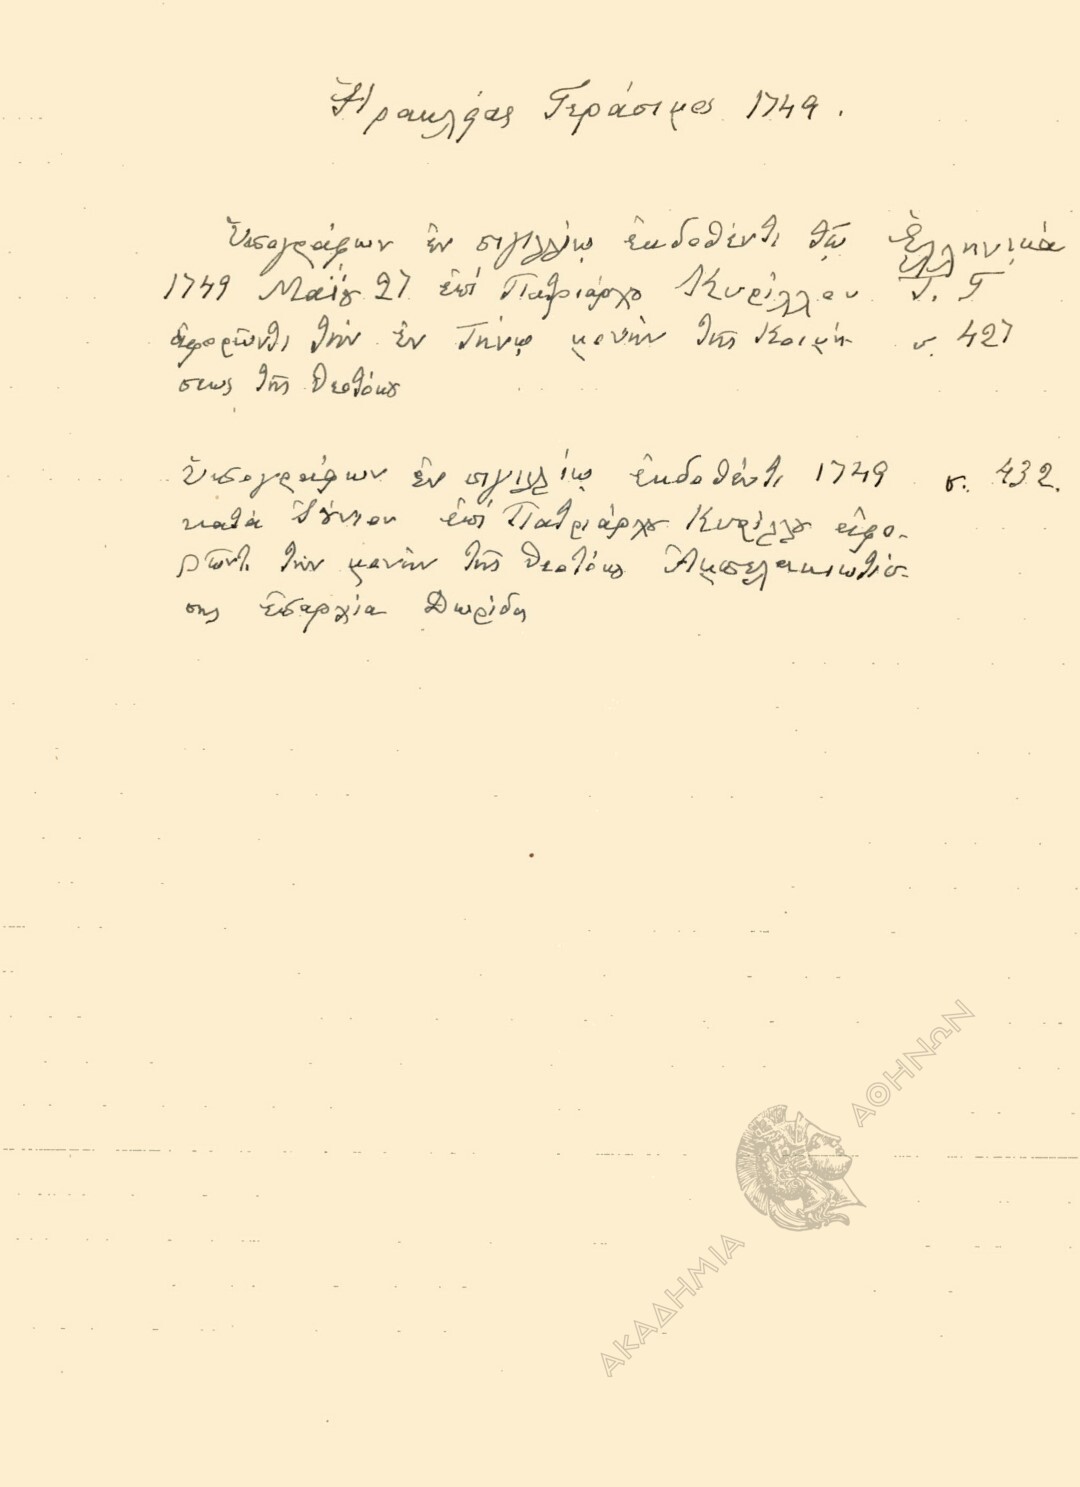 Ἡρακλείας Γεράσιμος 1749.
Ὑπογράφων ἐν σιγιλλίῳ ἐκδοθέντι τῷ Ἑλληνικά
1749 Μαΐου 27 ἐπί Πατριάρχου Κυρίλλου Τ. Γ
ἀφορῶντι τήν ἐν Τήνῳ μονήν τῆς Κοιμή- σ. 427
σεως τῆς Θεοτόκου
Ὑπογράφων ἐν σιγιλλίῳ ἐκδοθέντι 1749 σ. 432.
κατά Ἰούνιον ἐπί Πατριάρχου Κυρίλλου ἀφο-
ρῶντι τήν μονήν τῆς Θεοτόκου Ἀμπελακιωτίσ-
σης Ἐπαρχία Δωρίδος
ΑΚΑΔΗΜΙΑ ΑΘΗΝΩΝ